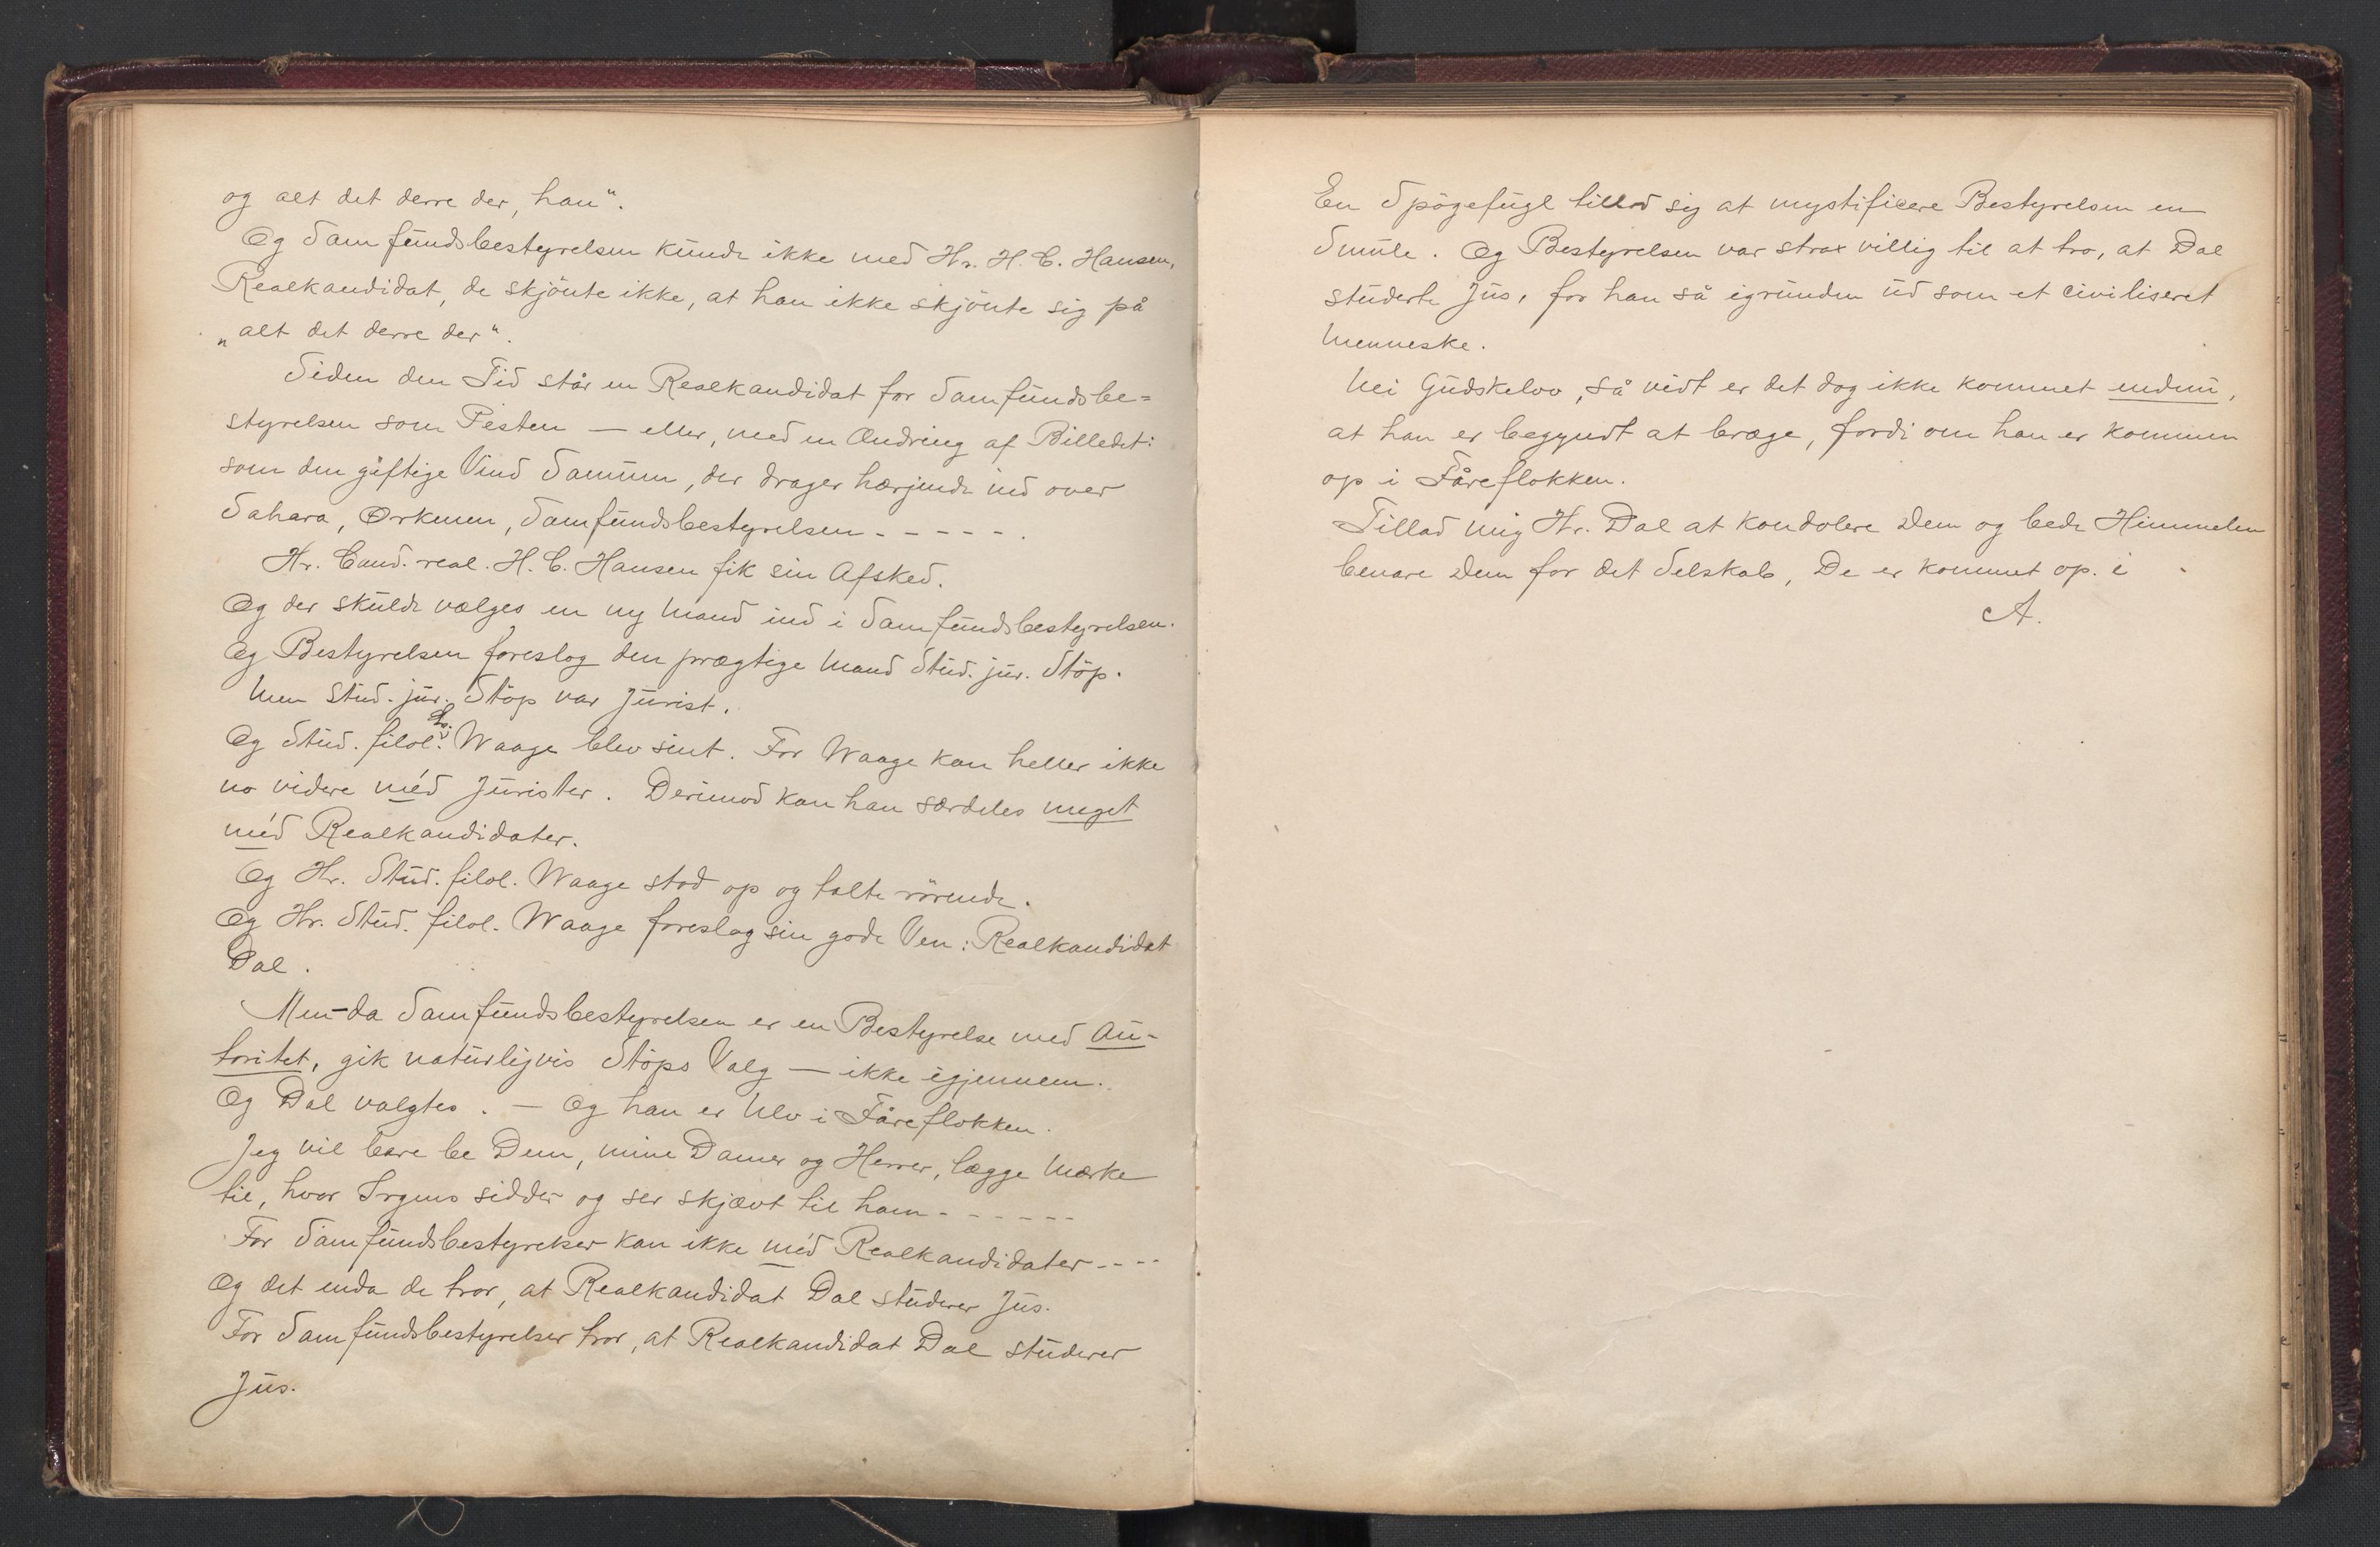 og alt det derre der, han".
Og Samfundsbestyrelsen kunde ikke med Hr. H. C. Hansen,
Realkandidat, de skjönte ikke, at han ikke skjönte sig på
„alt det derre der".
Siden den Tid står en Realkandidat for Samfundsbe=
styrelsen som Pesten — eller, med en Ændring af Billedet:
som den giftige Vind Samum, der drager hærjende ind over
Sahara, Ørkenen, Samfundsbestyrelsen - - - - - .
Hr. Cand. real. H. C. Hansen fik sin Afsked.
Og der skulde vælges en ny Mand ind i Samfundsbestyrelsen.
Og Bestyrelsen foreslog den prægtige Mand Stud. jur. Stöp.
Men Stud. jur. Stöp var Jurist.
Og Stud. filol. Waage blev sint. For Waage kan heller ikke
no videre méd Jurister. Derimod kan han særdeles meget
méd Realkandidater.
Og Hr. Stud. filol. Waage stod op og talte rörende.
Og Hr. Stud. filol. Waage foreslog sin gode Ven: Realkandidat
Dal.
Men - da Samfundsbestyrelsen er en Bestyrelse med Au-
toritet, gik naturligvis Stöps Valg — ikke igjennem.
Og Dal valgtes. — Og han er Ulv i Fåreflokken.
Jeg vil bare be Dem, mine Damer og Herrer, lægge Mærke
til, hvor Irgens sidder og ser skjævt til ham - - - - - -
For Samfundsbestyrelser kan ikke méd Realkandidater - - - -
Og det enda de tror, at Realkandidat Dal studerer Jus.
For Samfundsbestyrelser tror, at Realkandidat Dal studerer
Jus.
En Spögefugl tillod sig at mystificere Bestyrelsen en
Smule. Og Bestyrelsen var strax villig til at tro, at Dal
studerte Jus, for han så igrunden ud som et civiliseret
Menneske.
Nei Gudskelov, så vidt er det dog ikke kommet endnu,
at han er begyndt at bræge, fordi om han er kommen
op i Fåreflokken.
Tillad mig Hr. Dal at kondolere Dem og bede Himmelen
bevare Dem for det Selskab, De er kommet op i
A.